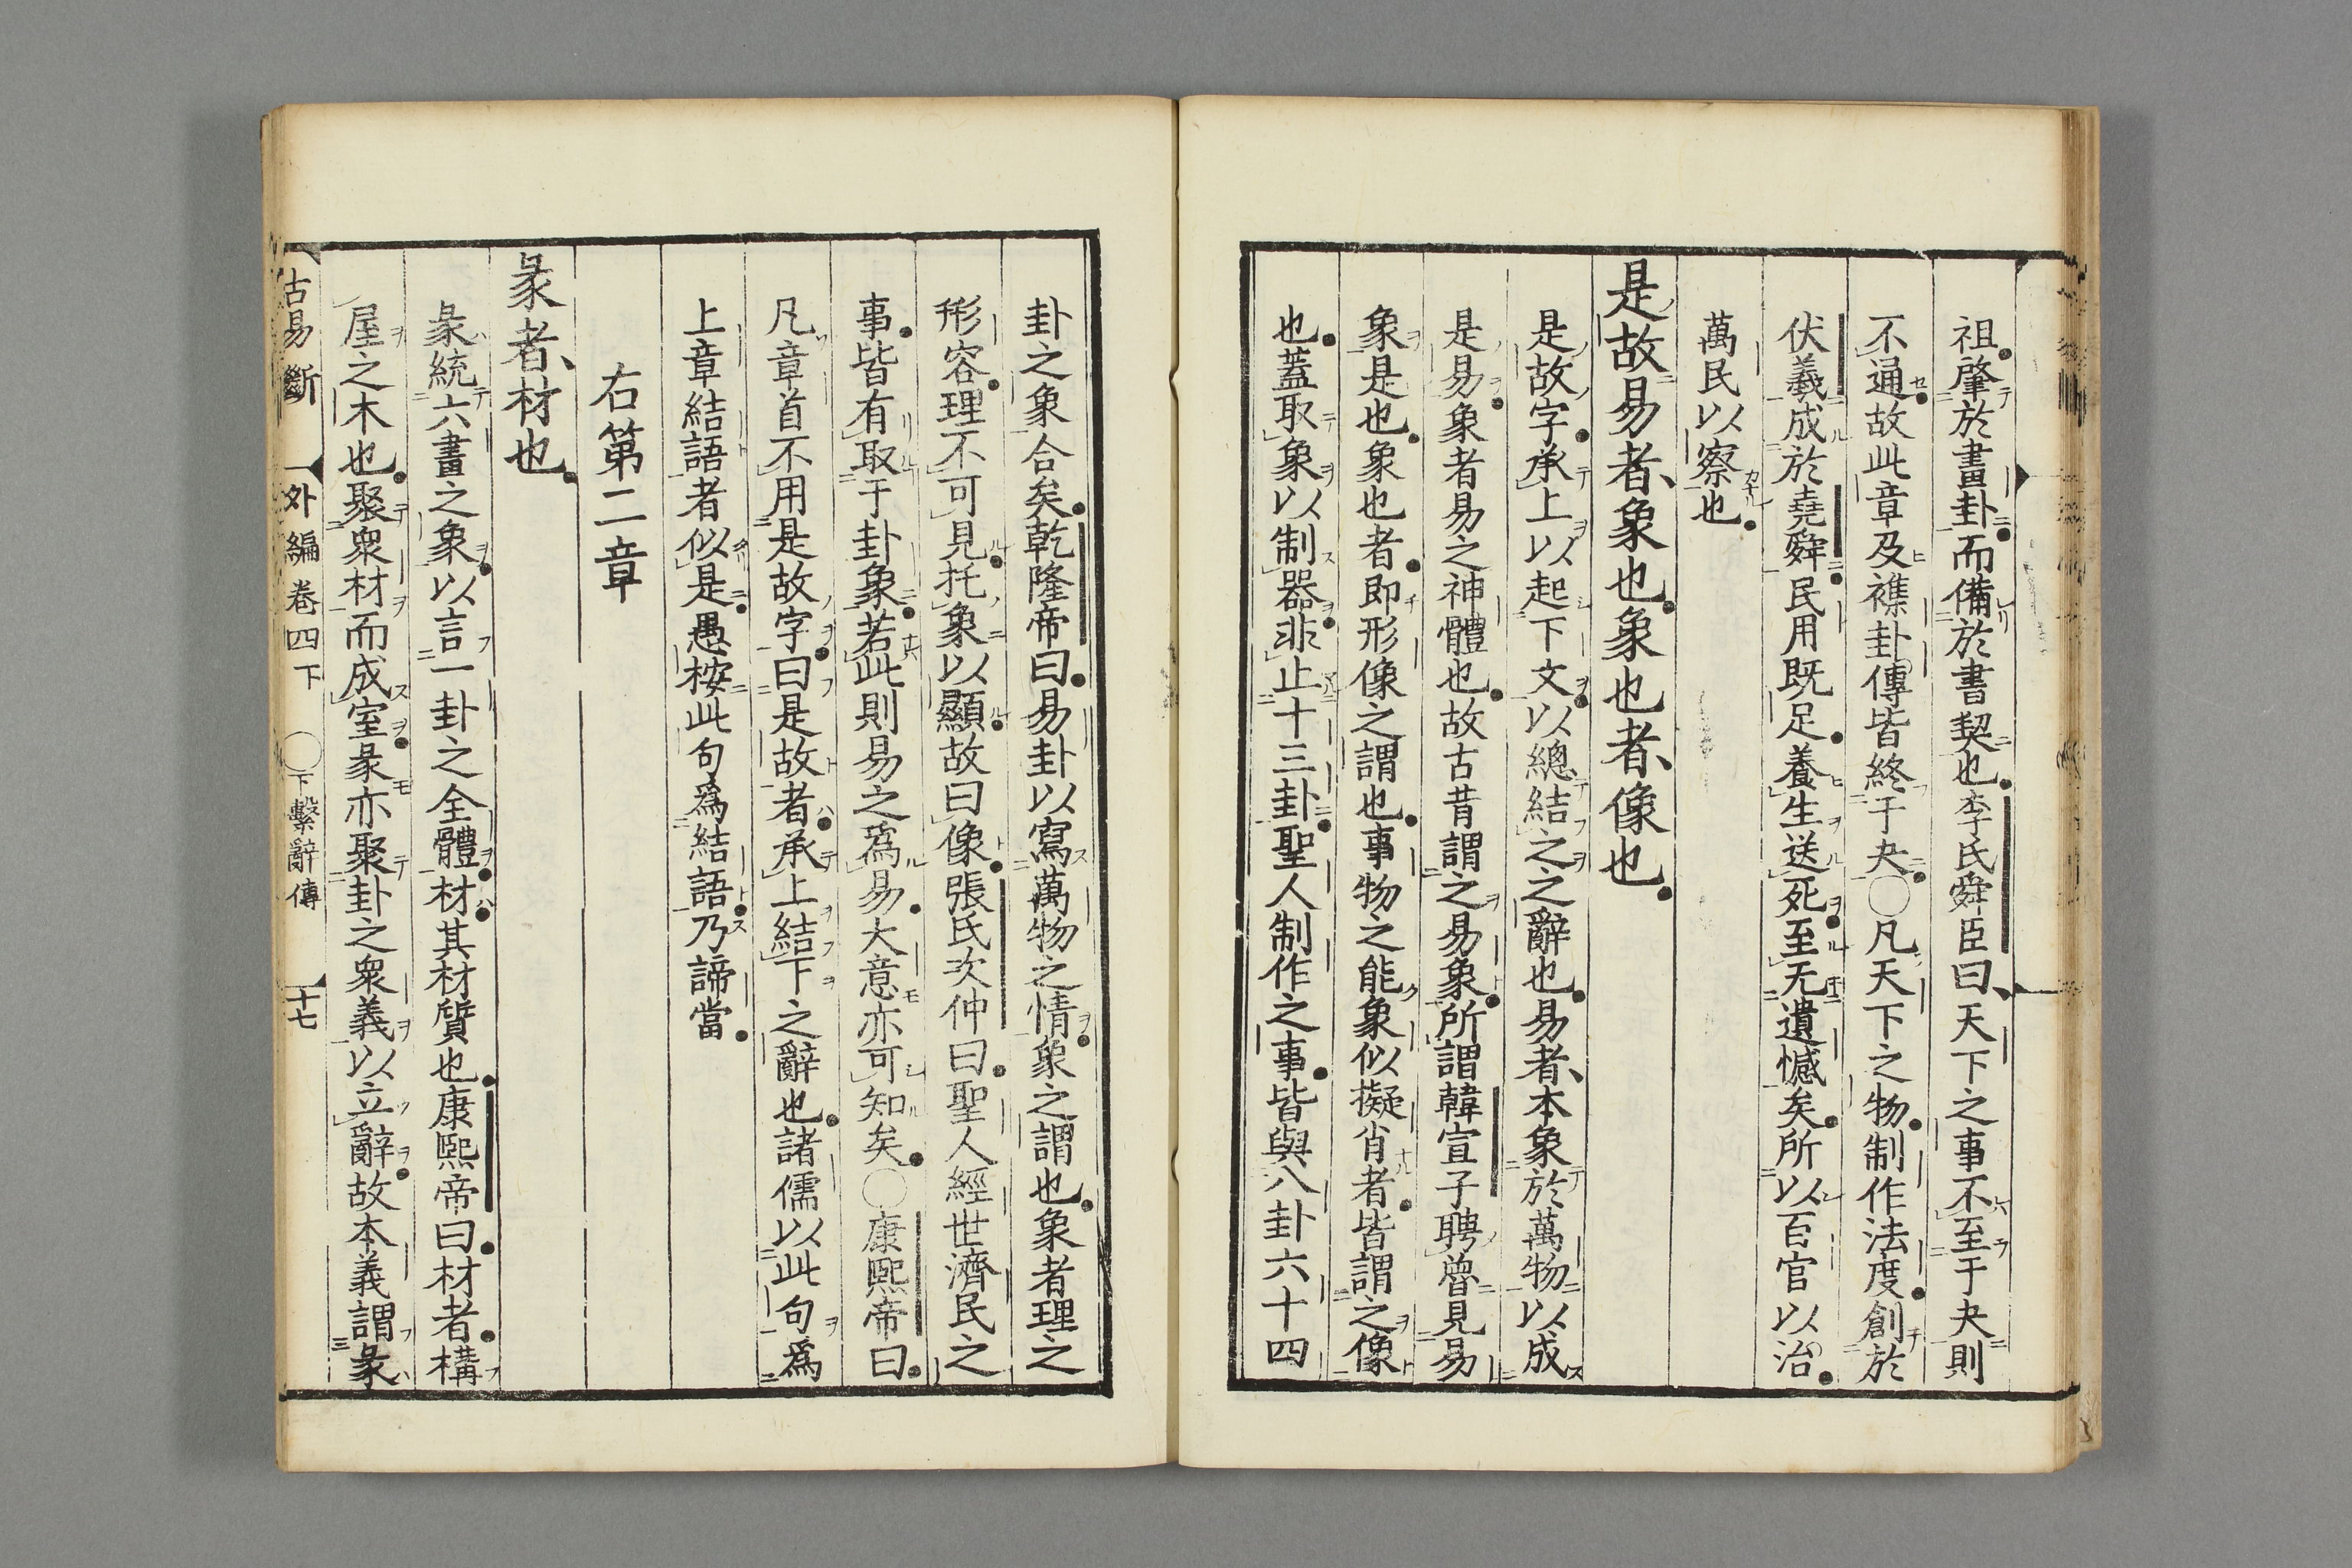 祖肇於畫卦而備於書契也李氏舜臣曰天下之事不至于夬則
不通故此章及襍卦傳皆終于夬○凡天下之物制作法度創於
伏羲成於堯舜民用既足養生送死至无遺憾矣所以百官以治
萬民以察也
是故易者象也象也者像也
是故字承上以起下文以總結之之辭也易者本象於萬物以成
是易象者易之神體也故古昔謂之易象所謂韓宣子聘魯見易
象是也象也者即形像之謂也事物之能象似擬肖者皆謂之像
也蓋取象以制器非止十三卦聖人制作之事皆與八卦六十四
卦之象合矣乾隆帝曰易卦以寫萬物之情象之謂也象者理之
形容理不可見托象以顯故曰像張氏次仲曰聖人經世濟民之
事皆有取于卦象若此則易之為易大意亦可知矣○康熙帝曰
凡章首不用是故字曰是故者承上結下之辭也諸儒以此句爲
上章結語者似是愚按此句爲結語乃諦當
右第二章
彖者材也
彖統六畫之象以言一卦之全體材其材質也康熙帝曰材者構
屋之木也聚衆材而成室彖亦聚卦之衆義以立辭故本義謂彖
古易斷 外編卷四下 ○下繫辭傳 十七